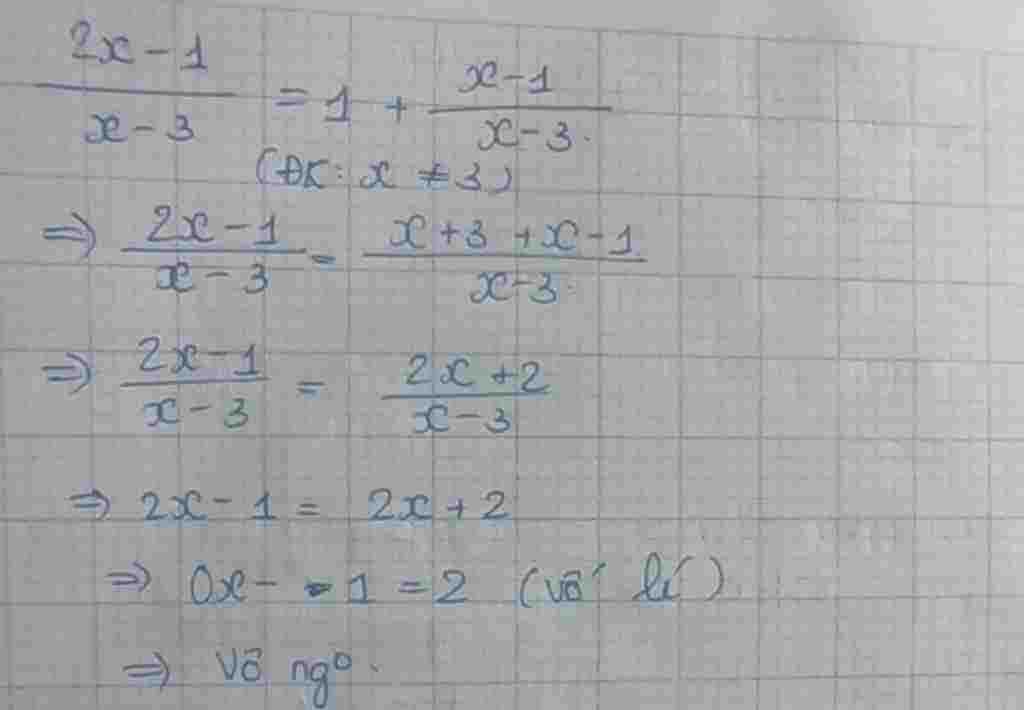 (2x - 1)/(x - 3) = 1 + (x - 1)/(x - 3).
(ĐK: x ≠ 3)
⇒ (2x - 1)/(x - 3) = (x + 3 + x - 1)/(x - 3).
⇒ (2x - 1)/(x - 3) = (2x + 2)/(x - 3)
⇒ 2x - 1 = 2x + 2
⇒ 0x - 1 = 2 (vô lí)
⇒ Vô ngº.